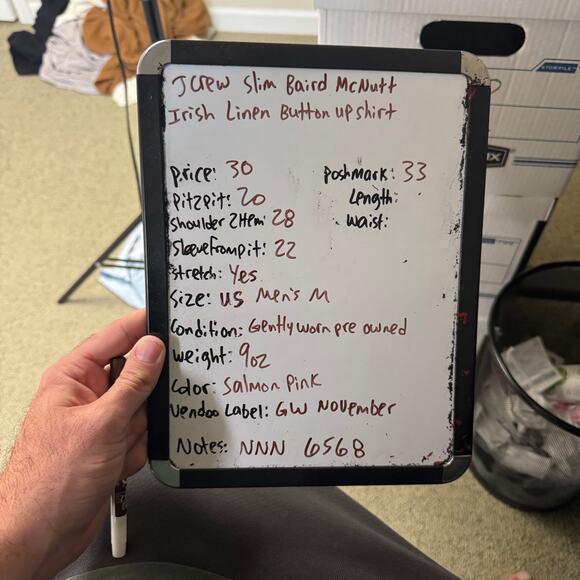 JCrew Slim Baird McNutt
Irish Linen Button up shirt
Price: 30
Poshmark: 33
Pit2pit: 20
Length:
Shoulder 2 Hem: 28
Waist:
SleeveFrompit: 22
Stretch: Yes
Size: US Men's M
Condition: Gently worn pre owned
Weight: 9oz
Color: Salmon Pink
Vendoo Label: GW November
Notes: NNN 6568